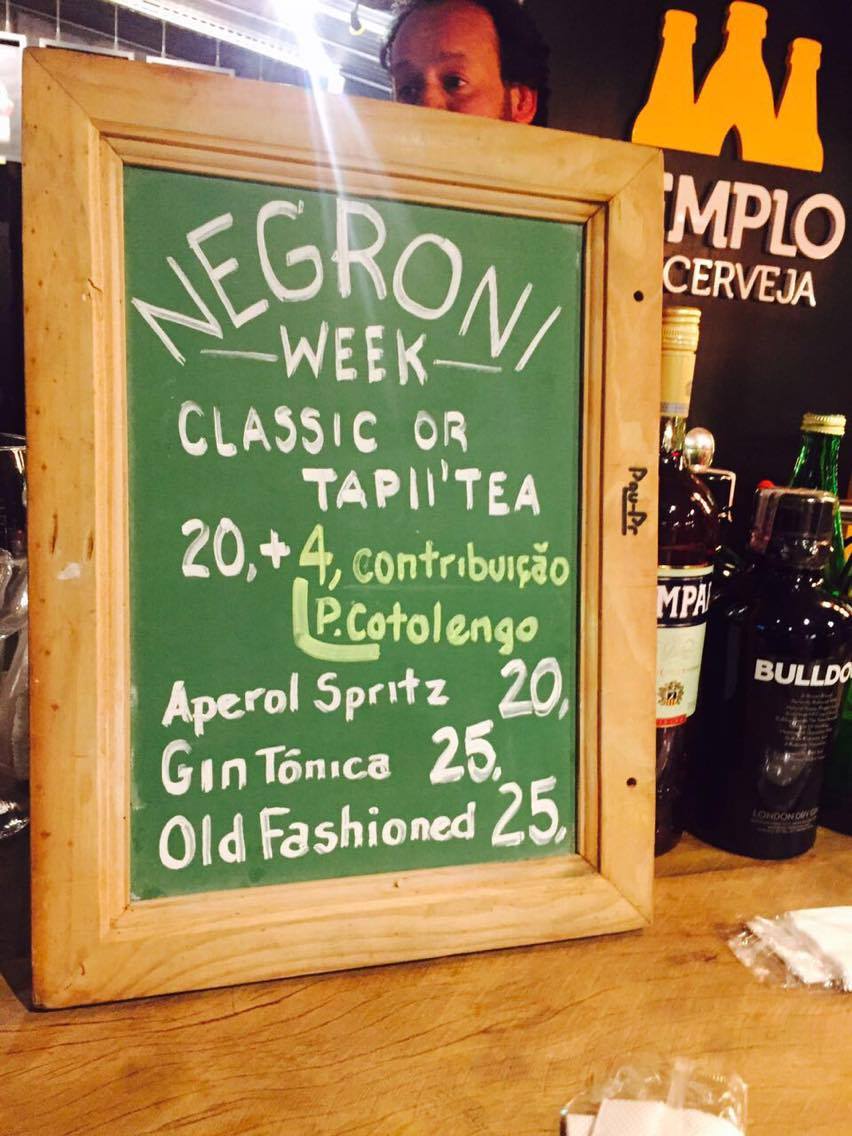 NEGRONI
WEEK
CLASSIC OR
TAPII'TEA
20,+4, contribuição
P.Cotolengo
Aperol Spritz 20,
Gin Tônica 25,
Old Fashioned 25,
EMPLO
CERVEJA
MPA
BULLDO
LONDON DRY